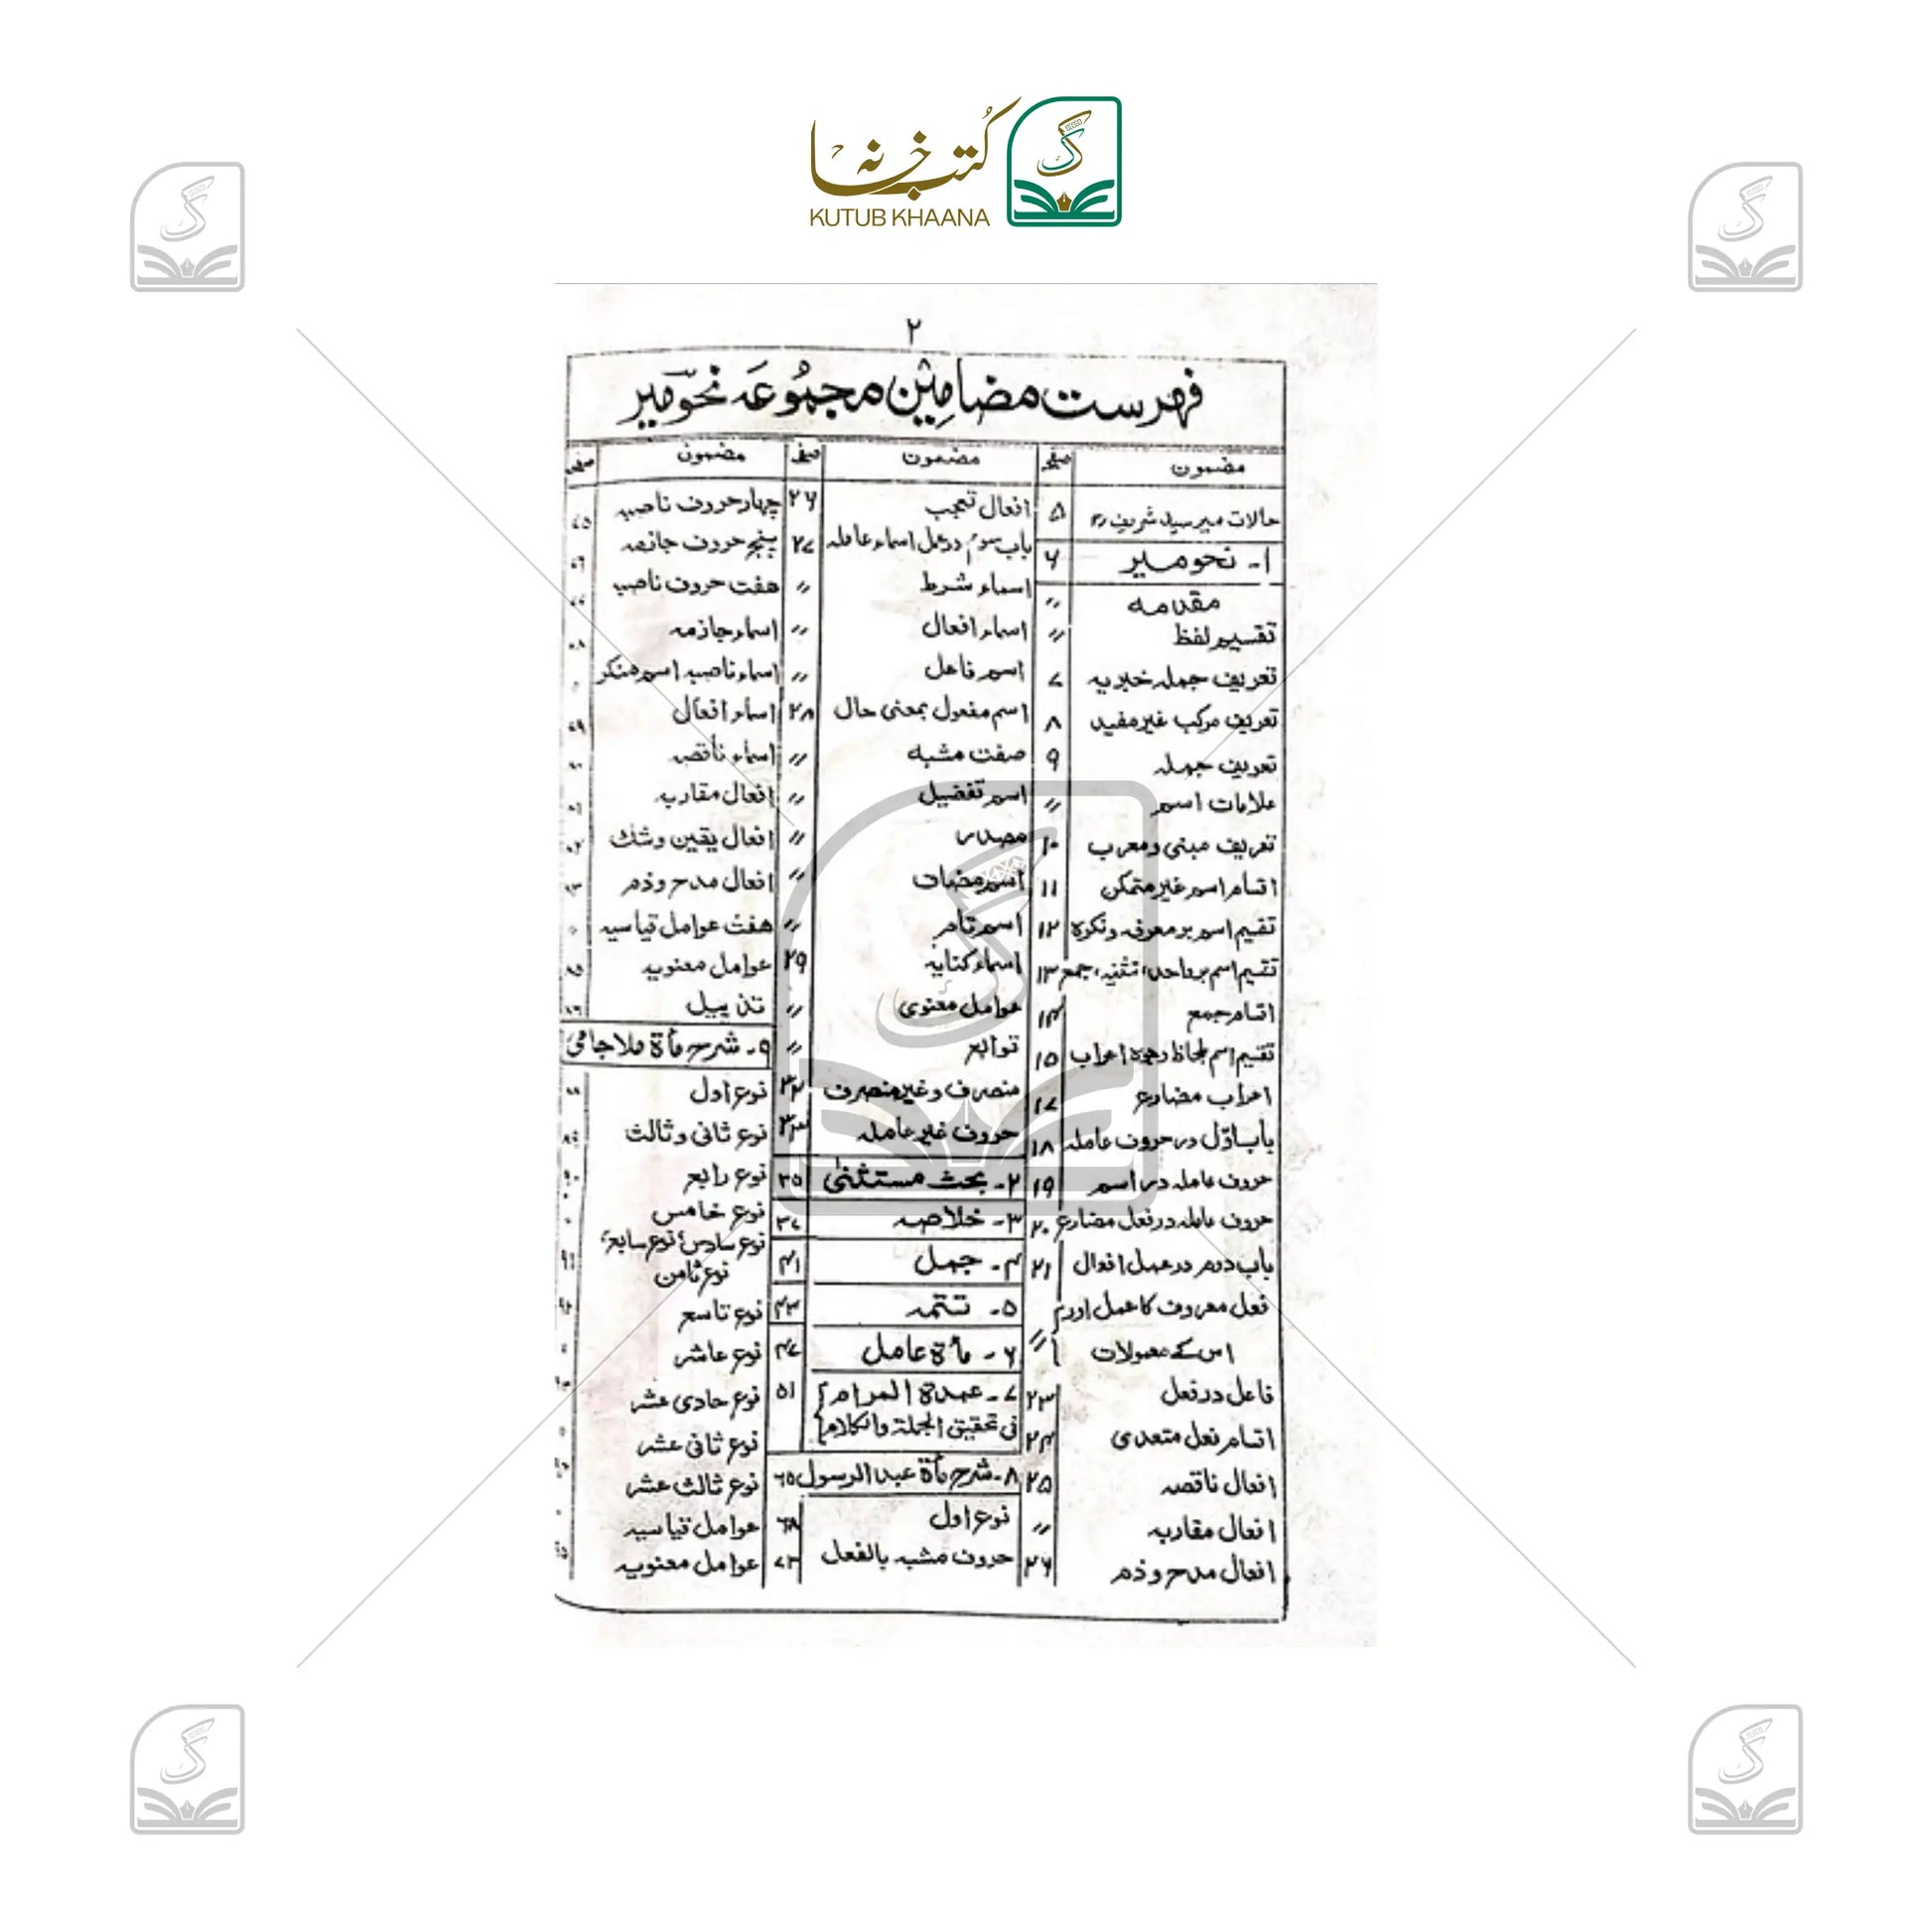 کتب خانہ
KUTUB KHAANA
۲
فہرست مضامین مجموعہ نحو میر
مضمون
صفحہ
حالات میر سید شریف ؒ ۵
۱۔ نحو میر ۶
مقدمہ 〃
تقسیم لفظ 〃
تعریف جملہ خبریہ ۷
تعریف مرکب غیر مفید ۸
تعریف جملہ ۹
علامات اسم 〃
تعریف مبنی و معرب ۱۰
اقسام اسم غیر متمکن ۱۱
تقسیم اسم بر معرفہ و نکرہ ۱۲
تقسیم اسم بر واحد، تثنیہ، جمع ۱۳
اقسام جمع ۱۴
تقسیم اسم بلحاظ وجوہ اعراب ۱۵
اعراب مضارع ۱۷
باب اوّل در حروف عاملہ ۱۸
حروف عاملہ در اسم ۱۹
حروف عاملہ در فعل مضارع ۲۰
باب دوم در عمل افعال ۲۱
فعل معروف کا عمل اور
اس کے معمولات 〃
فاعل در فعل ۲۳
اقسام فعل متعدی ۲۴
افعال ناقصہ ۲۵
افعال مقاربہ 〃
افعال مدح و ذم ۲۶
مضمون
صفحہ
افعال تعجب ۲۶
باب سوم در عمل اسماء عاملہ ۲۷
اسماء شرط 〃
اسماء افعال 〃
اسم فاعل 〃
اسم مفعول بمعنی حال ۲۸
صفت مشبہ 〃
اسم تفضیل 〃
مصدر 〃
اسم مضاف 〃
اسم تام 〃
اسماء کنایہ ۲۹
عوامل معنوی 〃
توابع 〃
منصرف و غیر منصرف ۳۲
حروف غیر عاملہ ۳۳
۲۔ بحث مستثنیٰ ۳۵
۳۔ خلاصہ ۳۷
۴۔ جمل ۴۱
۵۔ تتمہ ۴۳
۶۔ مأۃ عامل ۴۷
۷۔ عمدۃ المرام ۵۱
فی تحقیق الجملۃ والکلام
۸۔ شرح مأۃ عبد الرسول ۶۵
نوع اول ۶۸
حروف مشبہ بالفعل ۷۳
مضمون
صفحہ
چہار حروف ناصبہ
پنج حروف جازمہ
ہفت حروف ناصبہ
اسماء جازمہ
اسماء ناصبہ اسم منکر
اسماء افعال
اسماء ناقصہ
افعال مقاربہ
افعال یقین و شک
افعال مدح و ذم
ہفت عوامل قیاسیہ
عوامل معنویہ
تذییل
۹۔ شرح مأۃ ملا جامی
نوع اول
نوع ثانی و ثالث
نوع رابع
نوع خامس
نوع سادس، نوع سابع،
نوع ثامن
نوع تاسع
نوع عاشر
نوع حادی عشر
نوع ثانی عشر
نوع ثالث عشر
عوامل قیاسیہ
عوامل معنویہ